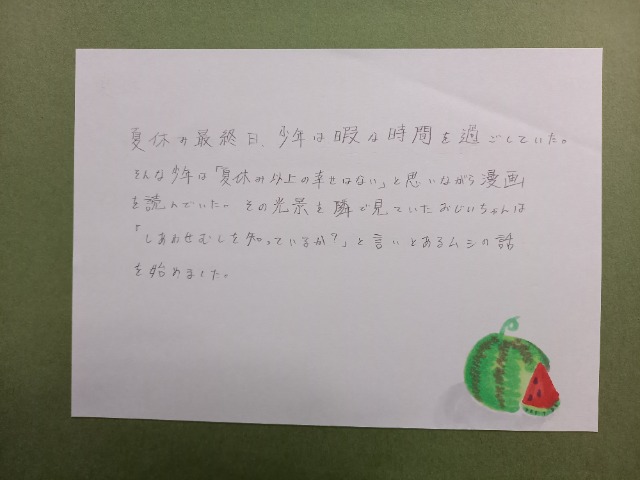 夏休み最終日、少年は暇な時間を過ごしていた。
そんな少年は「夏休み以上の幸せはない」と思いながら漫画
を読んでいた。その光景を隣で見ていたおじいちゃんは
「しあわせむしを知っているか？」と言いとあるムシの話
を始めました。